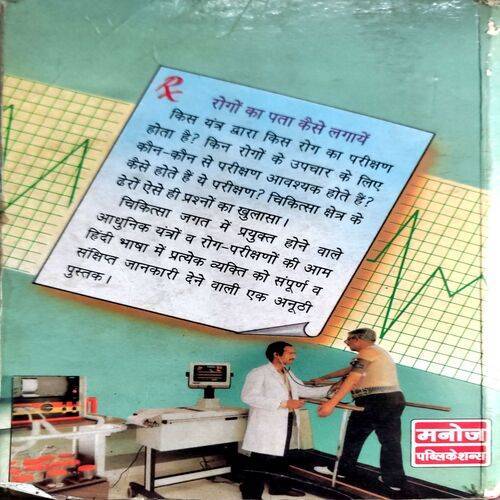 Rx
रोगों का पता कैसे लगायें
किस यंत्र द्वारा किस रोग का परीक्षण
होता है? किन रोगों के उपचार के लिए
कौन-कौन से परीक्षण आवश्यक होते हैं?
कैसे होते हैं ये परीक्षण? चिकित्सा क्षेत्र के
ढेरों ऐसे ही प्रश्नों का खुलासा।
चिकित्सा जगत में प्रयुक्त होने वाले
आधुनिक यंत्रों व रोग-परीक्षणों की आम
हिंदी भाषा में प्रत्येक व्यक्ति को संपूर्ण व
संक्षिप्त जानकारी देने वाली एक अनूठी
पुस्तक।
मनोज
पब्लिकेशन्स